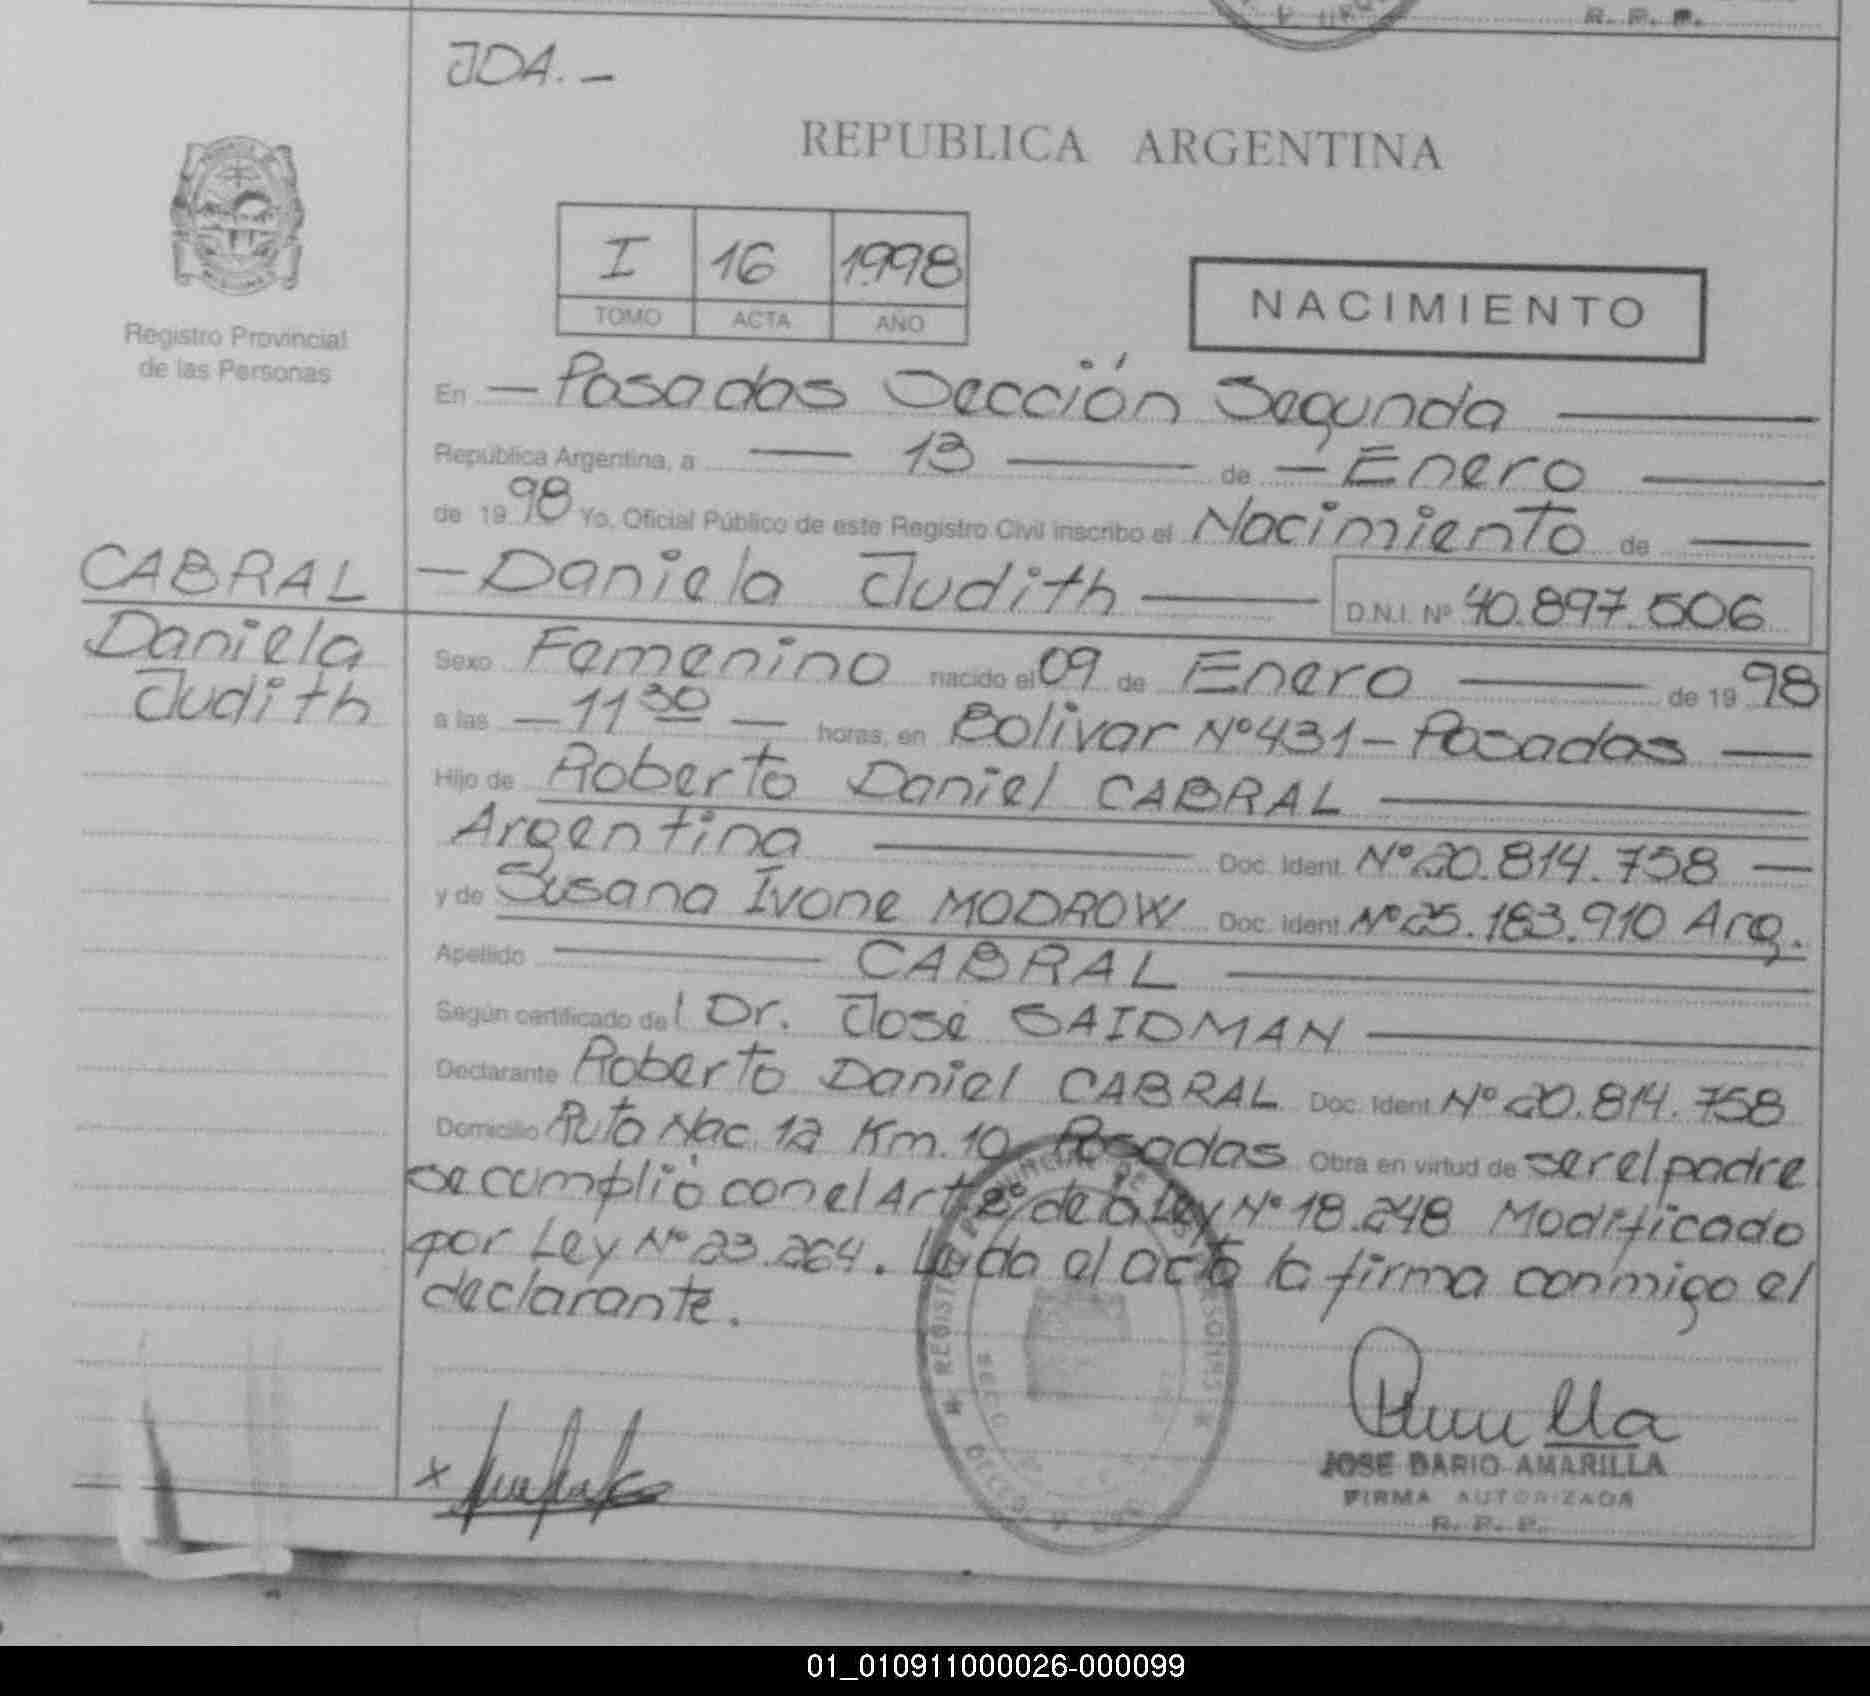 R. P. P.
JDA. -
REPUBLICA ARGENTINA
I 16 1.998
TOMO ACTA AÑO
NACIMIENTO
Registro Provincial
de las Personas
En - Posadas Sección Segunda
República Argentina, a 13 de - Enero
de 19 98 Yo, Oficial Público de este Registro Civil inscribo el Nacimiento de
CABRAL
Daniela
Judith
- Daniela Judith D.N.I. Nº 40.897.506
Sexo Femenino nacido el 09 de Enero de 19 98
a las - 11 30 - horas, en Bolivar Nº 431 - Posadas
Hijo de Roberto Daniel CABRAL
Argentina Doc. Ident. Nº 20.814.758
y de Susana Ivone MODROW Doc. Ident. Nº 25.183.910 Arg.
Apellido CABRAL
Según certificado del Dr. José SAIDMAN
Declarante Roberto Daniel CABRAL Doc. Ident. Nº 20.814.758
Domicilio Ruta Nac. 12 Km. 10 Posadas Obra en virtud de ser el padre
se cumplió con el Art. 2º de la Ley Nº 18.248 Modificado
por Ley Nº 23.264. Leída el acta la firma conmigo el
declarante.
x
JOSE DARIO AMARILLA
FIRMA AUTORIZADA
R. P. P.
01_010911000026-000099